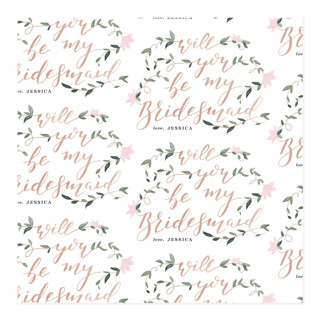 will
you
be my
Bridesmaid
love, JESSICA
will
you
be my
Bridesmaid
love, JESSICA
will
you
be my
Bridesmaid
love, JESSICA
will
you
be my
Bridesmaid
love, JESSICA
will
you
be my
Bridesmaid